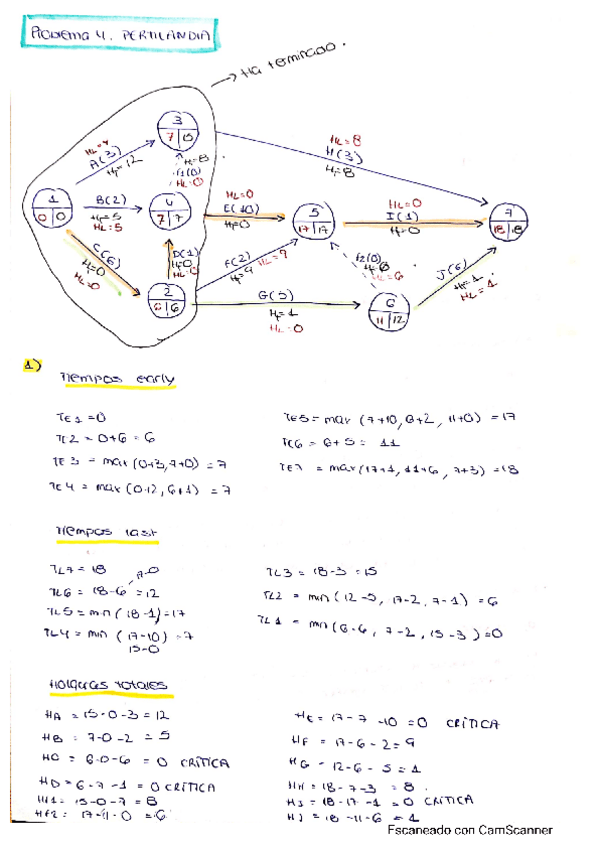 PROBLEMA 4. PERTILANDIA
Ha terminado.
HL=4
A(3)
Ht=12
3
7 | 15
Ht=8
f1(0)
HL=0
HL=8
H(3)
Ht=8
1
0 | 0
B(2)
Ht=5
HL=5
4
7 | 7
HL=0
E(10)
Ht=0
5
17 | 17
HL=0
I(1)
Ht=0
7
18 | 18
C(6)
Ht=0
HL=0
D(1)
Ht=0
HL=0
F(2)
Ht=9
HL=9
f2(0)
HL=6
J(6)
Ht=1
HL=1
2
6 | 6
G(5)
Ht=1
HL=0
6
11 | 12
1)
Tiempos early
TE1 = 0
TE2 = 0+6 = 6
TE3 = max (0+3, 7+0) = 7
TE4 = max (0+2, 6+1) = 7
TE5 = max (7+10, 6+2, 11+0) = 17
TE6 = 6+5 = 11
TE7 = max (17+1, 11+6, 7+3) = 18
Tiempos last
TL7 = 18
TL6 = 18-6 = 12
TL5 = min (18-1) = 17
TL4 = min (17-10) = 7
15-0
TL3 = 18-3 = 15
TL2 = min (12-5, 17-2, 7-1) = 6
TL1 = min (6-6, 7-2, 15-3) = 0
Holguras totales
HA = 15-0-3 = 12
HB = 7-0-2 = 5
HC = 6-0-6 = 0 CRÍTICA
HD = 6-7-1 = 0 CRÍTICA
Hf1 = 15-0-7 = 8
Hf2 = 17-11-0 = 6
HE = 17-7-10 = 0 CRÍTICA
HF = 17-6-2 = 9
HG = 12-6-5 = 1
HH = 18-7-3 = 8
HI = 18-17-1 = 0 CRÍTICA
HJ = 18-11-6 = 1
Escaneado con CamScanner